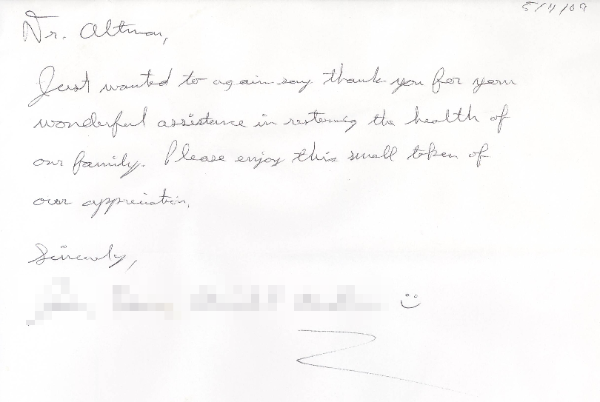 5/11/09
Dr. Altman,
Just wanted to again say thank you for your
wonderful assistance in restoring the health of
our family. Please enjoy this small token of
our appreciation.
Sincerely,